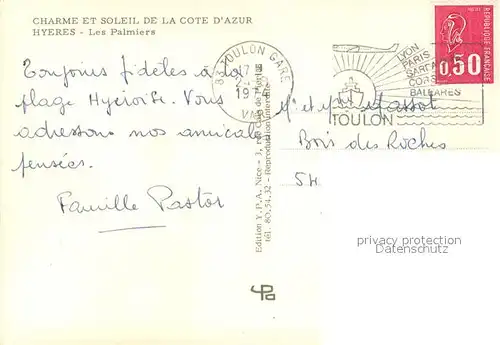 CHARME ET SOLEIL DE LA COTE D'AZUR
HYERES - Les Palmiers
Toujours fidèles à la
plage Hyéroise. Vous
adressons nos amicale
pensées.
Famille Pastor
83 TOULON GARE
17 H
197
VAR
LYON
PARIS
CORSE
BALEARES
TOULON
REPUBLIQUE FRANÇAISE
0,50
Edition Y.P.A. Nice - 3, rue
tél. 80.54.32 - Reproduction interdite
Mr et Mme Massot
Bois des Roches
54
privacy protection
oldthing.de